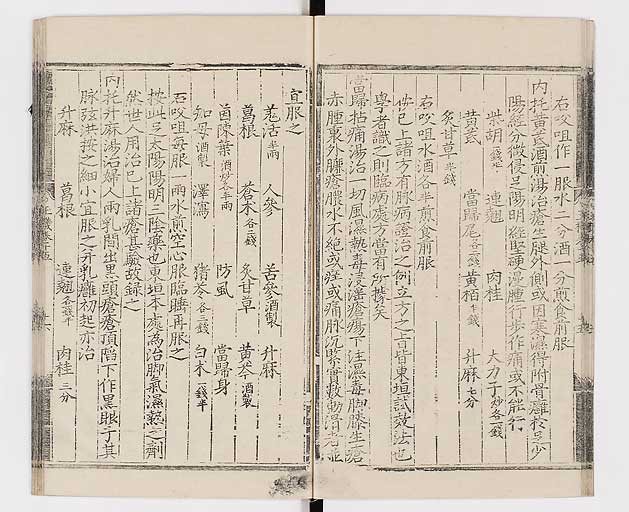 右㕮咀作一服水二分酒一分煎食前服
内托黃芪酒煎湯治瘡生腿外側或因寒濕得附骨癰於足少
陽經分微侵足陽明經堅硬漫腫行步作痛或不能行
柴胡一錢半 連翹 肉桂 大力子炒各一錢
黃芪 當歸尾各二錢 黃栢半錢 升麻七分
炙甘草半錢
右㕮咀水酒各半煎食前服
按已上諸方有脉病證治之例立方之旨皆東垣試效法也
學者識之則臨病處方當有所據矣
當歸枯痛湯治一切風濕熱毒浸淫瘡瘍下注濕毒脚膝生瘡
赤腫裏外臁瘡膿水不絶或痒或痛脉沉緊實數動滑者並
宜服之
羌活半兩 人參 苦參酒製 升麻
葛根 蒼术各二錢 炙甘草 黃芩酒製
茵陳葉酒炒各半兩 防風 當歸身
知母酒製 澤瀉 猪苓各三錢 白术一錢半
右㕮咀每服一兩水煎空心服臨睡再服之
按此足太陽陽明三陰藥也東垣本處為治脚氣濕熱之劑
然世人用治已上諸瘡甚驗故錄之
内托升麻湯治婦人兩乳間出黑頭瘡瘡頂陷下作黑眼子其
脉弦洪按之細小宜服之并乳癰初起亦治
升麻 葛根 連翹各錢半 肉桂三分